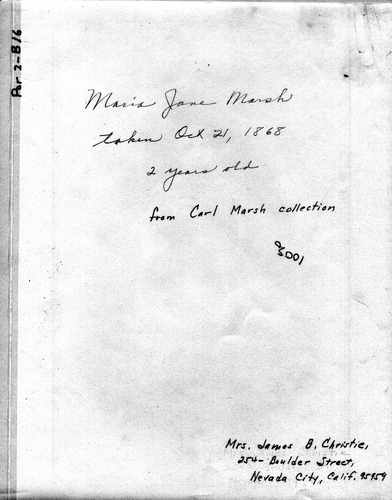 Por 2-B16
Maria Jane Marsh
taken Oct 21, 1868
2 years old
from Carl Marsh collection
Mrs. James B. Christie,
254- Boulder Street,
Nevada City, Calif. 95959